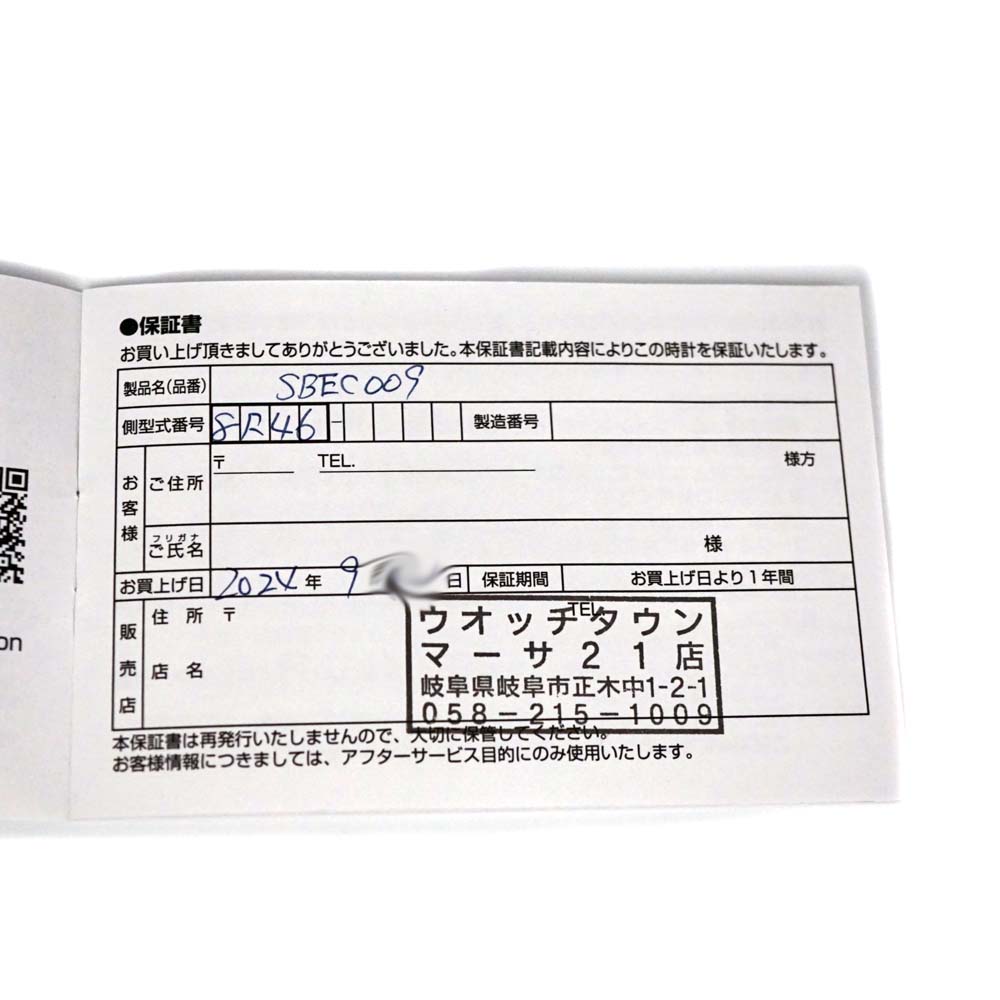 ●保証書
お買い上げ頂きましてありがとうございました。本保証書記載内容によりこの時計を保証いたします。
製品名(品番) SBEC009
側型式番号 8R46 - 製造番号
お客様 ご住所 〒 TEL. 様方
フリガナ
ご氏名 様
お買上げ日 2024年 9 日 保証期間 お買上げ日より1年間
販売店 住所 〒 TEL.
店名
ウオッチタウン
マーサ21店
岐阜県岐阜市正木中1-2-1
058-215-1009
本保証書は再発行いたしませんので、大切に保管してください。
お客様情報につきましては、アフターサービス目的にのみ使用いたします。
on